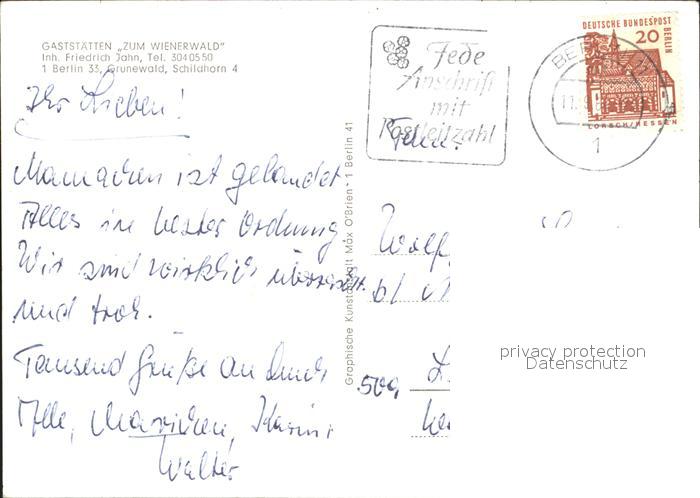 GASTSTÄTTEN „ZUM WIENERWALD"
Inh. Friedrich Jahn, Tel. 3040550
1 Berlin 33, Grunewald, Schildhorn 4
Ihr Lieben!
Mamachen ist gelandet
Alles in bester Ordnung
Wir sind wirklich überrascht
und froh.
Tausend Grüße an Euch
Alle, Mamachen, Karin
Walter
Graphische Kunstanstalt Max O'Brien · 1 Berlin 41
Jede
Anschrift
mit
Postleitzahl
Fam.
BERLIN
1
DEUTSCHE BUNDESPOST
BERLIN
20
LORSCH/HESSEN
Wolf
b/
509
privacy protection
Datenschutz